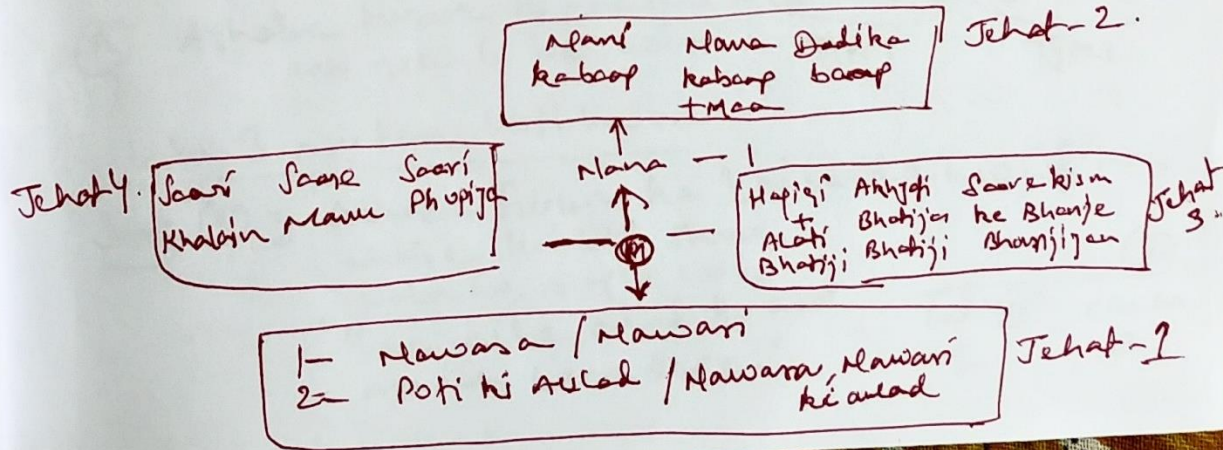 Nani Nana Dadi ka
ka baap ka baap baap
+ Maa
Jehat-2.
Nana - 1
Jehat 4.
Saari Saare Saari
Khalain Mamu Phopiya
Haqiqi Akhyafi Saare kism
+ Bhatija ke Bhanje
Alati Bhatiji Bhanjijan
Bhatiji
Jehat
3.
1- Nawasa / Nawasi
2- Poti ki Aulad / Nawasa, Nawasi
ki aulad
Jehat-1